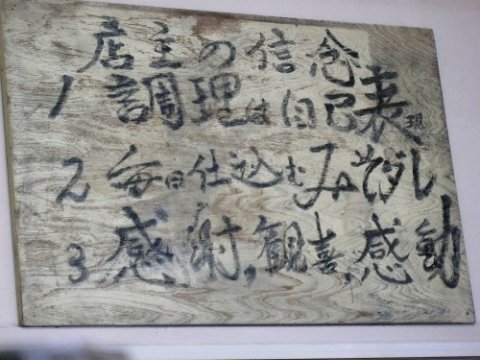 店主の信念
1 調理は自己表現
2 毎日仕込むみそだし
3 感謝,観喜,感動